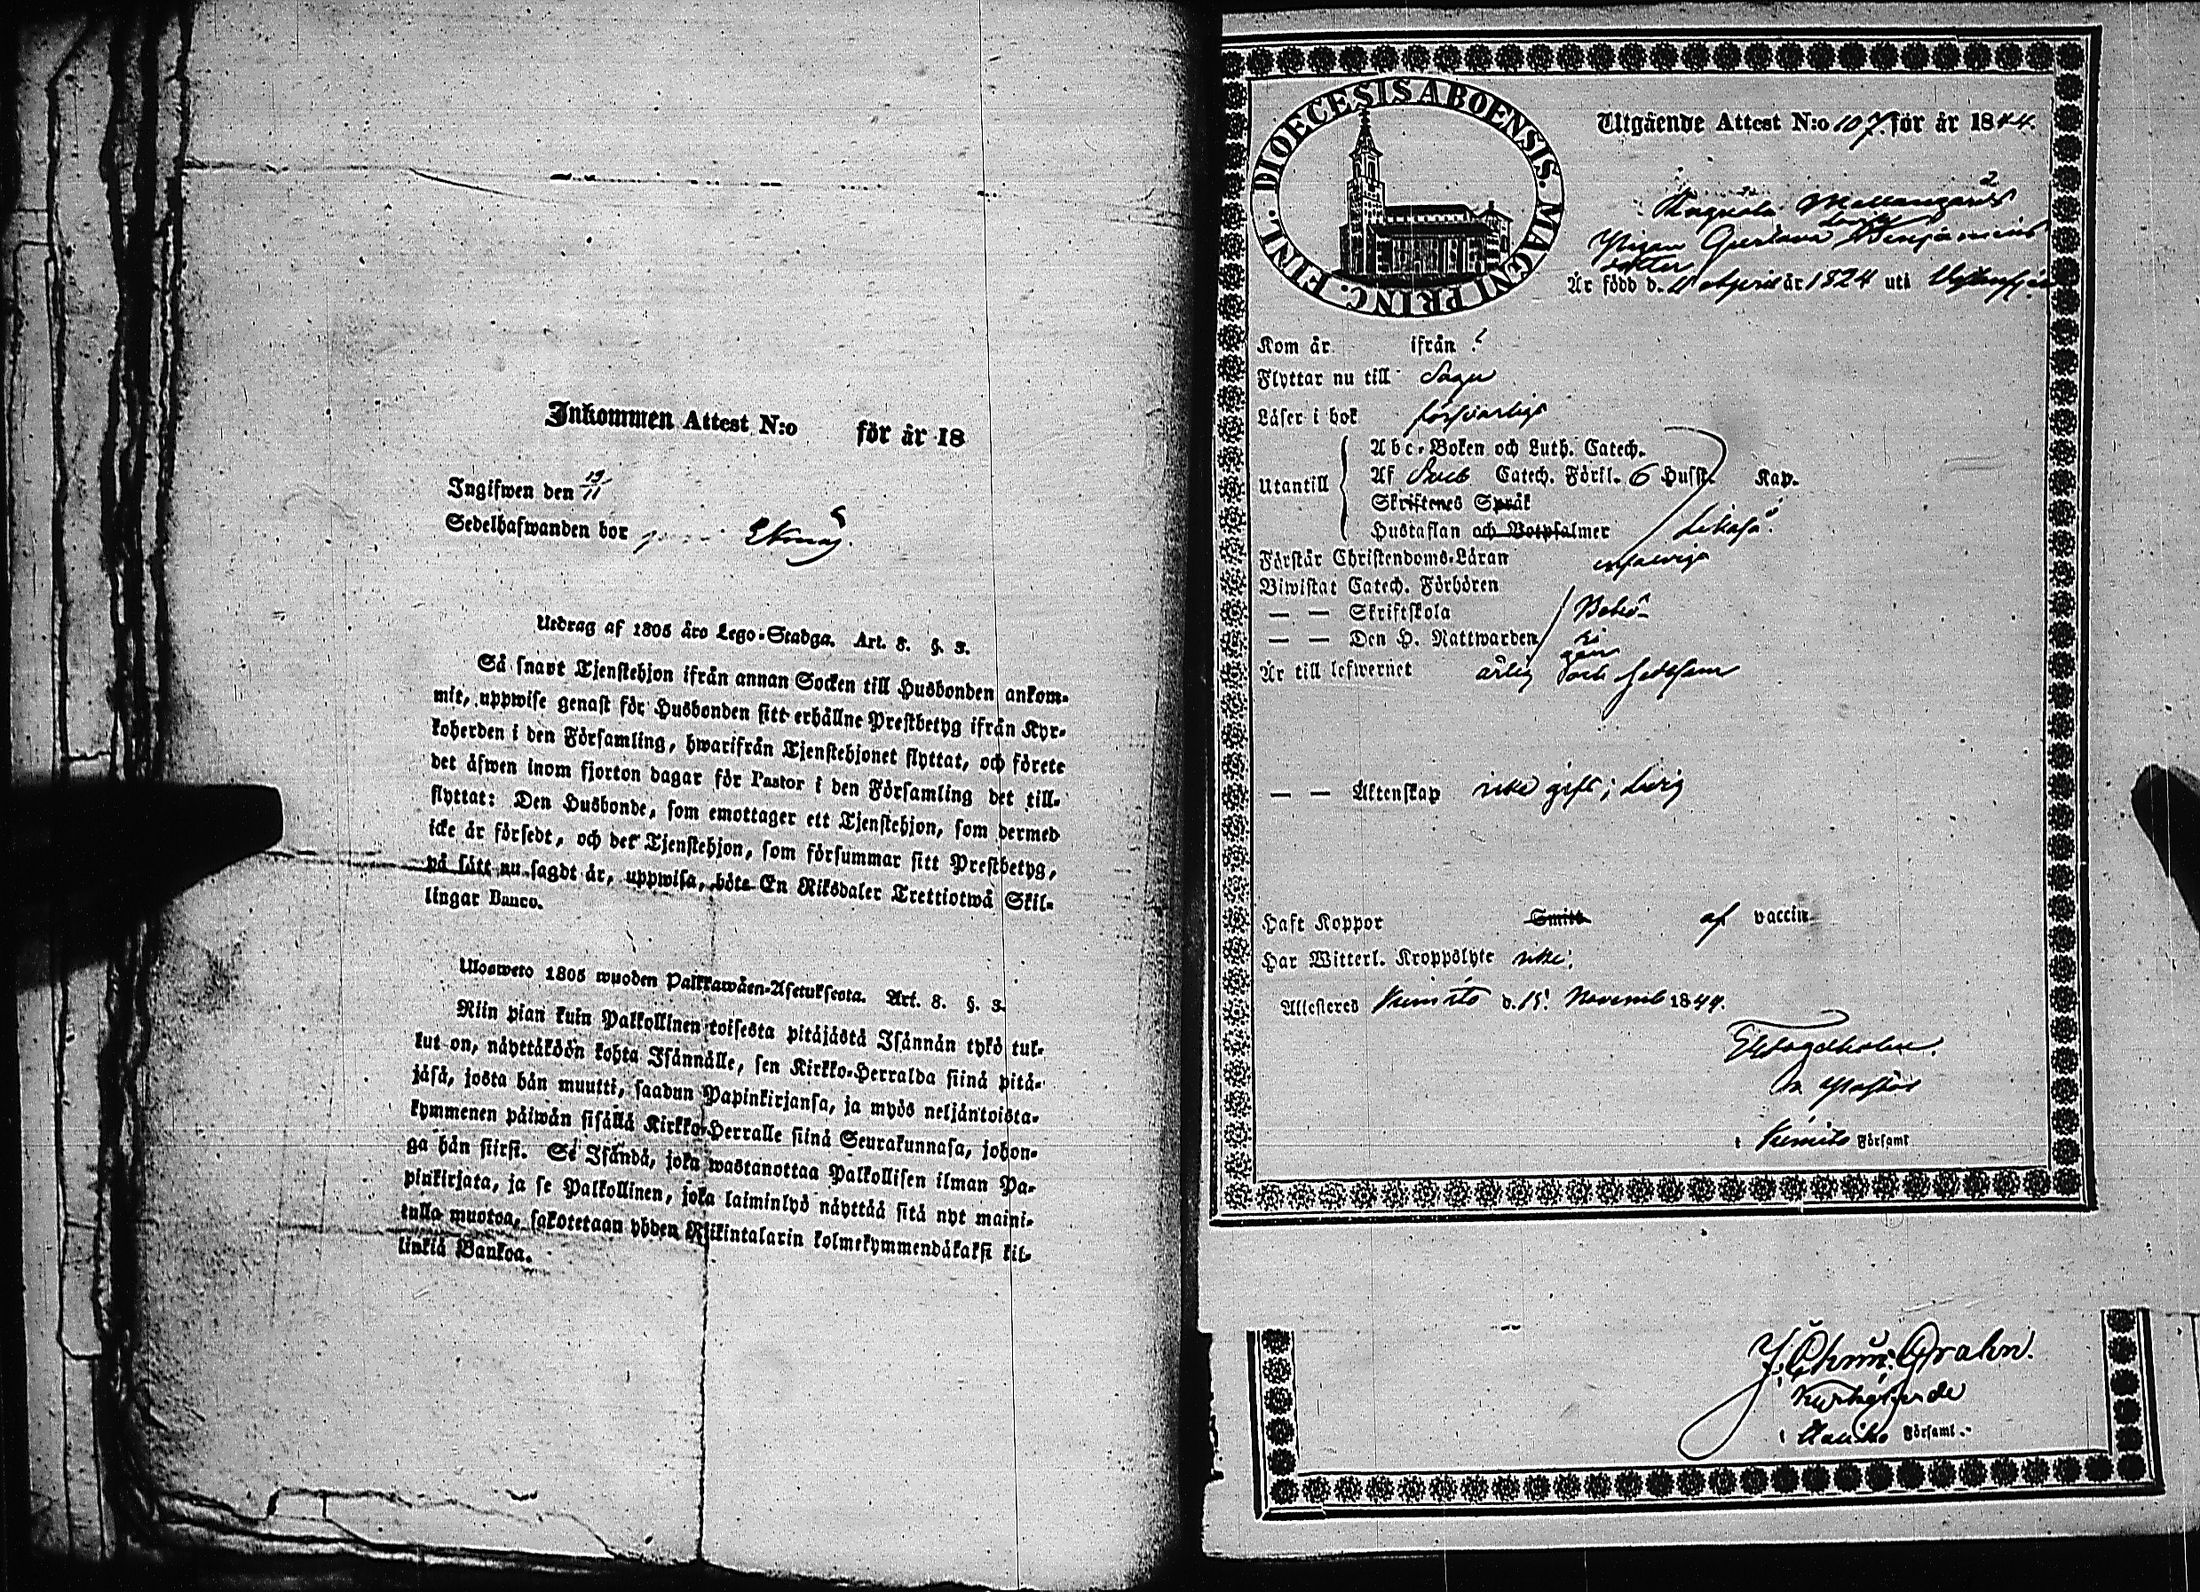 Inkommen Attest N:o för år 18
Ingifwen den 19/11
Sedelhafwanden bor
Utdrag af 1805 års Lego-Stadga. Art. 8. §. 3.
Så snart Tjenstehjon ifrån annan Socken till Husbonden ankom-
mit, uppwise genast för Husbonden sitt erhållne Prestbetyg ifrån Kyr-
koherden i den Församling, hwarifrån Tjenstehjonet flyttat, och förete
det äfwen inom fjorton dagar för Pastor i den Församling det till-
flyttat: Den Husbonde, som emottager ett Tjenstehjon, som dermed
icke är försedt, och det Tjenstehjon, som försummar sitt Prestbetyg,
på sätt nu sagdt är, uppwisa, böte En Riksdaler Trettiotwå Skil-
lingar Banco.
Ulosweto 1805 wuoden Palkkawäen-Asetuksesta. Art. 8. §. 3.
Niin pian kuin Palkollinen toisesta pitäjästä Isännän tykö tul-
lut on, näyttäköön kohta Isännälle, sen Kirkko-Herralda siinä pitä-
jäsä, josta hän muutti, saadun Papinkirjansa, ja myös neljäntoista-
kymmenen päiwän sisällä Kirkko-Herralle siinä Seurakunnasa, johon-
ga hän siirsi. Se Isändä, joka wastanottaa Palkollisen ilman Pa-
pinkirjata, ja se Palkollinen, joka laiminlyö näyttää sitä nyt maini-
tulla muotoa, sakotetaan yhden Riikintalarin kolmekymmendäkaksi kil-
linkiä Bankoa.
FINL. DIOECESIS ABOENSIS. MAGNI PRINC.
Utgående Attest N:o 107. för år 1844.
Mellangård
Pigan Gustava Benjamins
dotter
Är född d. April år 1824 uti
Kom år ifrån ?
Flyttar nu till Sagu
Läser i bok försvarligt
Utantill
Abc-Boken och Luth. Catech.
Af Sveb Catech. Förkl. 6 Husst. Kap.
Skriftenes Språk
Hustaflan och Botpsalmer likaså.
Förstår Christendoms-Läran
Biwistat Catech. Förhören
— — Skriftskola Behö-
— — Den H. Nattwarden ri
gen
Är till lefwernet ärlig och sedesam
— — Äktenskap icke gift; ledig
Haft Koppor Smitt af vaccin
Har Witterl. Kroppslyte icke.
Attesteras Kimito d. 15 Novemb 1844.
v. Pastor
i Kimito Församl
J. Chr. Grahn.
Kyrkoherde
i Församl.